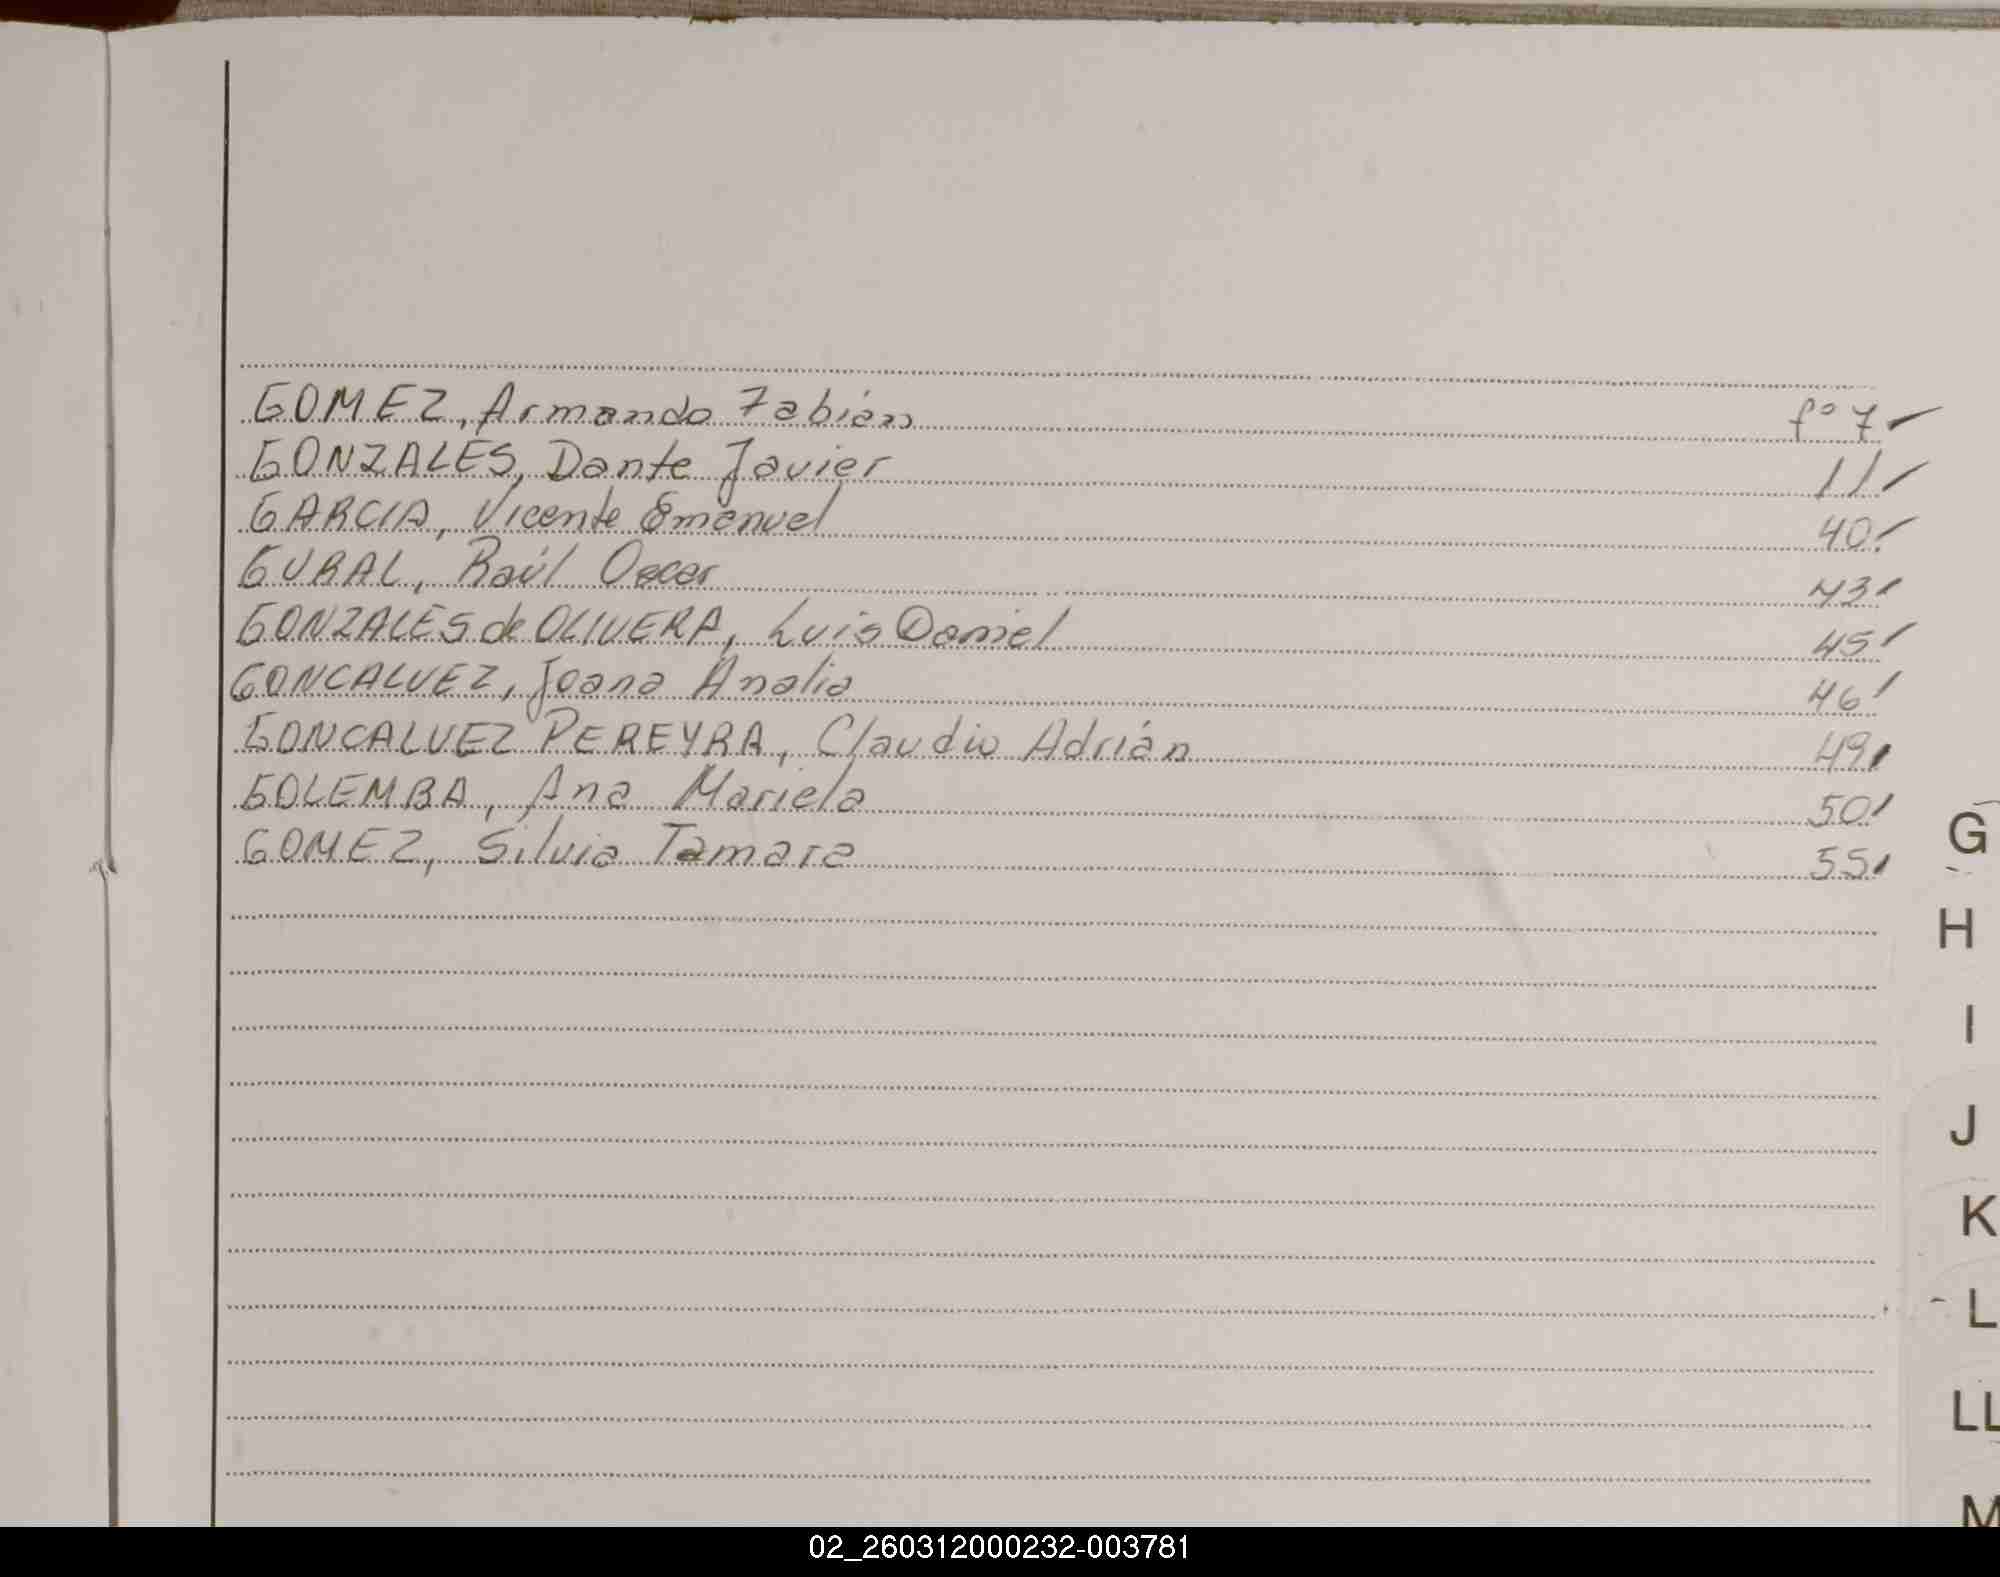 GOMEZ, Armando Fabián f° 7
GONZALES, Dante Javier 11
GARCIA, Vicente Emanuel 40
GURAL, Raúl Oscar 43
GONZALES de OLIVERA, Luis Daniel 45
GONCALVEZ, Joana Analia 46
GONCALVEZ PEREYRA, Claudio Adrián 49
GOLEMBA, Ana Mariela 50
GOMEZ, Silvia Tamara 55
G
H
I
J
K
L
LL
M
02_260312000232-003781